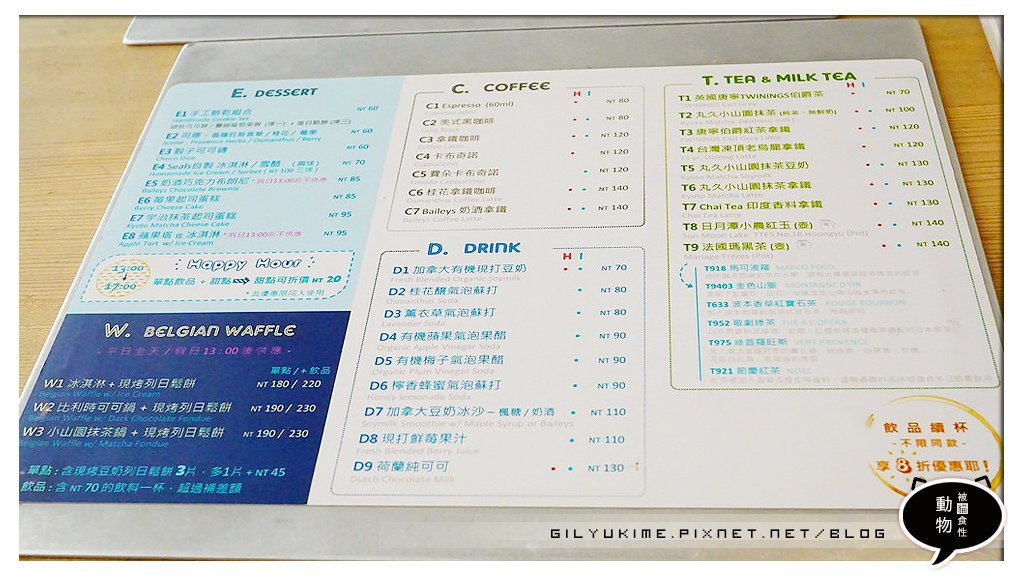 E. DESSERT
E1 手工餅乾組合 NT 60
Handmade Cookie Set
E2 司康 - 普羅旺斯香草 / 桂花 / 莓果 NT 60
Scone - Provence Herbs / Osmanthus / Berry
E3 骰子可可磚 NT 60
Choco Dice
E4 Seals自製 冰淇淋 / 雪酪 （兩球） NT 70
Homemade Ice Cream / Sorbet ( NT 100 三球 )
E5 奶酒巧克力布朗尼 *假日13:00前不供應 NT 85
Baileys Chocolate Brownie
E6 莓果起司蛋糕 NT 85
Berry Cheese Cake
E7 宇治抹茶起司蛋糕 NT 95
Kyoto Matcha Cheese Cake
E8 蘋果塔 佐 冰淇淋 *假日13:00前不供應 NT 95
Apple Tart w/ Ice Cream
Happy Hour
13:00
17:00
單點飲品 + 甜點 甜點可折價 NT 20
*此優惠限同人使用
W. BELGIAN WAFFLE
- 平日全天 / 假日13:00後供應 -
單點 / + 飲品
W1 冰淇淋 + 現烤列日鬆餅 NT 180 / 220
Belgian Waffle w/ Ice Cream
W2 比利時可可鍋 + 現烤列日鬆餅 NT 190 / 230
Belgian Waffle w/ Dark Chocolate Fondue
W3 小山園抹茶鍋 + 現烤列日鬆餅 NT 190 / 230
Belgian Waffle w/ Matcha Fondue
單點 : 含現烤豆奶列日鬆餅 3片 , 多1片 + NT 45
飲品 : 含 NT 70 的飲料一杯 , 超過補差額
C. COFFEE
H I
C1 Espresso (60ml) NT 80
C2 美式黑咖啡 NT 80
Long Black
C3 拿鐵咖啡 NT 120
C4 卡布奇諾 NT 120
Cappuccino
C5 費朵卡布奇諾 NT 120
Freddo Cappuccino
C6 桂花拿鐵咖啡 NT 140
Osmanthus Coffee Latte
C7 Baileys 奶酒拿鐵 NT 140
Baileys Coffee Latte
D. DRINK
H I
D1 加拿大有機現打豆奶 NT 70
Fresh Blended Organic Soymilk
D2 桂花釀氣泡蘇打 NT 80
Osmanthus Soda
D3 薰衣草氣泡蘇打 NT 80
Lavender Soda
D4 有機蘋果氣泡果醋 NT 90
Organic Apple Vinegar Soda
D5 有機梅子氣泡果醋 NT 90
Organic Plum Vinegar Soda
D6 檸香蜂蜜氣泡蘇打 NT 90
Honey lemonade Soda
D7 加拿大豆奶冰沙 – 楓糖 / 奶酒 NT 110
Soymilk Smoothie w/ Maple Syrup or Baileys
D8 現打鮮莓果汁 NT 110
Fresh Blended Berry Juice
D9 荷蘭純可可 NT 130
Dutch Chocolate Milk
T. TEA & MILK TEA
H I
T1 英國唐寧TWININGS伯爵茶 NT 70
TWININGS Earl Grey
T2 丸久小山園抹茶 (純茶 - 無鮮奶) NT 100
Kyoto Matcha (without milk)
T3 唐寧伯爵紅茶拿鐵 NT 120
TWININGS Earl Grey Latte
T4 台灣凍頂老烏龍拿鐵 NT 120
Oolong Latte
T5 丸久小山園抹茶豆奶 NT 130
Kyoto Matcha Soymilk
T6 丸久小山園抹茶拿鐵 NT 130
Kyoto Matcha Latte
T7 Chai Tea 印度香料拿鐵 NT 130
Chai Tea Latte
T8 日月潭小農紅玉 (壺) NT 140
Sun Moon Lake TTES No.18 Houngyu (Pot)
T9 法國瑪黑茶 (壺) NT 140
Mariage Frères (Pot)
T918 馬可波羅 MARCO POLO
T9403 金色山脈 MONTAGNE D'OR
T633 波本香草紅寶石茶 ROUGE BOURBON
T952 歌劇綠茶 THÉ À L'OPÉRA
T975 綠普羅旺斯 VERT PROVENCE
T921 節慶紅茶 NOËL
飲品續杯
- 不限同款 -
享 8 折優惠耶!
被囮食性
動物
GILYUKIME.PIXNET.NET/BLOG